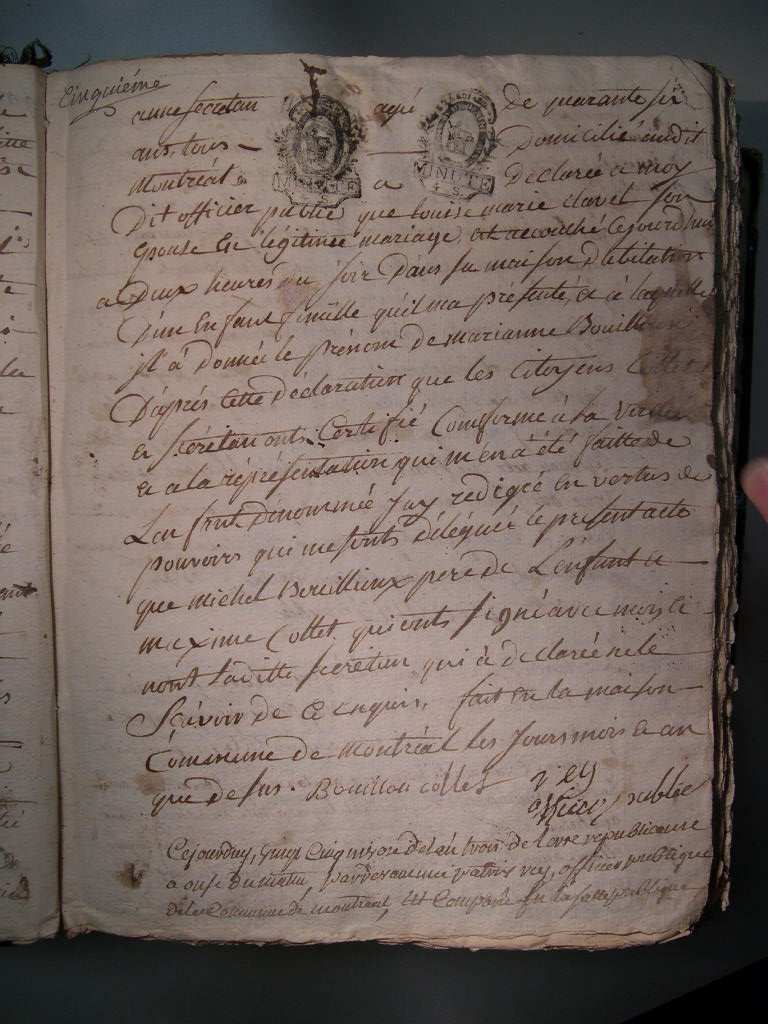 Cinquiéme
anne secretan agé de quarante six
ans, tous domicilié audit
Montréal a Declarée a moy
MINUTE
4 S.
MINUTE
4 S.
Dit officier public que Louise marie clavel Son
Epouse En légitime mariage, est accouché Cejourdhuy
a Deux heures du soir Dans sa maison D'ebitation
D'un Enfant fémélle qu'il ma présenté, et à laquelle
jl à donnée le prénom de marianne Bouillieux
D'après Cette Déclaration que les Citoyens Collet
et Sécrétan onts Certifié Comforme à la Verité
et a la représentation qui m'en à été faitte de
L'en fant Dénommée Jay redigée en vertus des
pouvoirs qui me sonts délégués le present acte
que michel Bouillieux pere de L'enfant et
maxime Collet qui onts signé avec moi, et
nont laditte secrétan qui à declarée ne le
Scavoir de ce enquis, fait en la maison
Commune de montréal les Jours mois et an
que desus. Bouillou collet rey
officier public
Cejourduy, quinze de lan trois de l'ere republicaine
a onse du matin, pardevant rey, officier publique
de la Commune de montreal, est Comparu En la salle publique